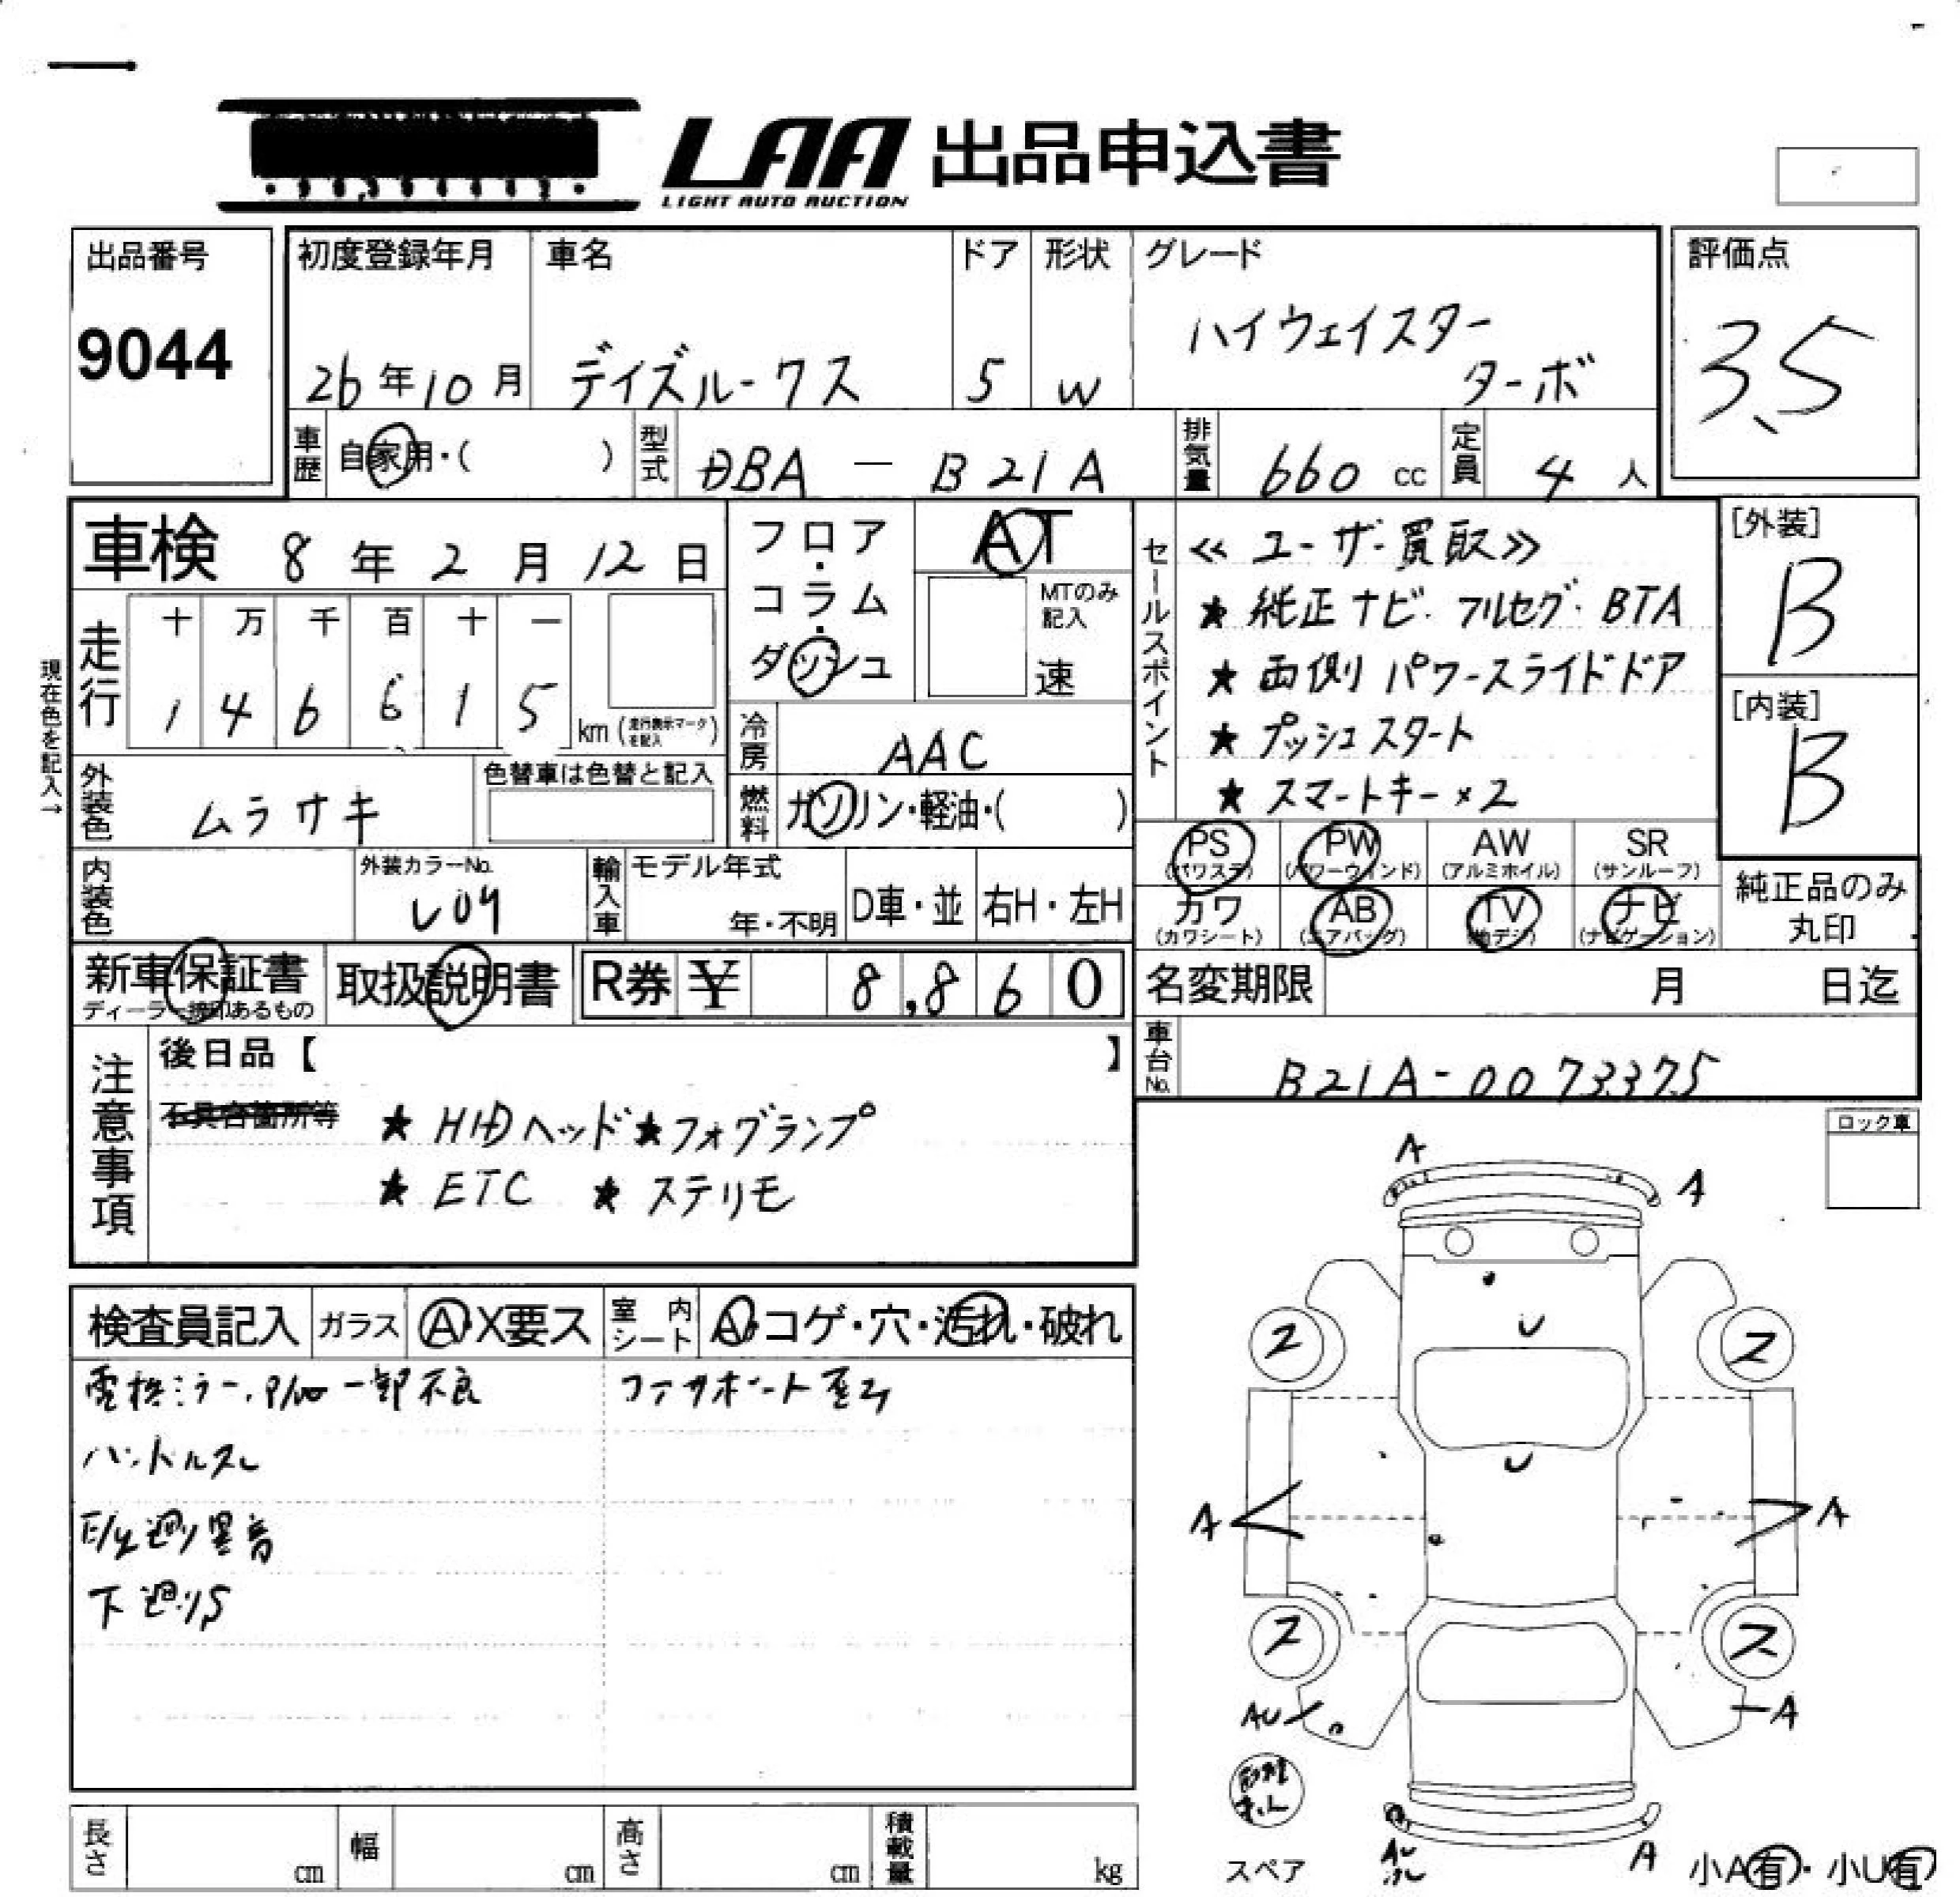 LAA 出品申込書
LIGHT AUTO AUCTION
出品番号
9044
初度登録年月
26年10月
車名
デイズルークス
ドア
5
形状
W
グレード
ハイウェイスター
ターボ
評価点
3.5
車歴
自家用・( )
型式
DBA - B21A
排気量
660 cc
定員
4 人
車検 8年2月12日
フロア・
コラム・
ダッシュ
AT
MTのみ
記入
速
走行
十 万 千 百 十 一
1 4 6 6 1 5 km (走行表示マークを記入)
現在色を記入→
外装色
ムラサキ
色替車は色替と記入
冷房
AAC
燃料
ガソリン・軽油・( )
セールスポイント
≪ ユーザー買取≫
★ 純正ナビ・フルセグ・BTA
★ 両側パワースライドドア
★ プッシュスタート
★ スマートキー×2
[外装]
B
[内装]
B
PS
(パワステ)
PW
(パワーウインド)
AW
(アルミホイル)
SR
(サンルーフ)
カワ
(カワシート)
AB
(エアバッグ)
TV
(地デジ)
ナビ
(ナビゲーション)
純正品のみ
丸印
内装色
外装カラーNo.
L09
輸入車
モデル年式
年・不明
D車・並
右H・左H
新車保証書
ディーラー捺印あるもの
取扱説明書
R券 ¥ 8,860
名変期限 月 日迄
車台No.
B21A-0073375
注意事項
後日品【 】
不具合箇所等
★ HIDヘッド ★フォグランプ
★ ETC ★ ステリモ
ロック車
検査員記入
ガラス
A・X要ス
室内シート
A・コゲ・穴・汚れ・破れ
電格ミラー、P/W一部不良
ハンドルスレ
E/g廻り異音
下廻りS
A
A
U
2
2
U
A
A
2
2
AU
A
AU
A
スペア
小A有・小U有
長さ cm
幅 cm
高さ cm
積載量 kg